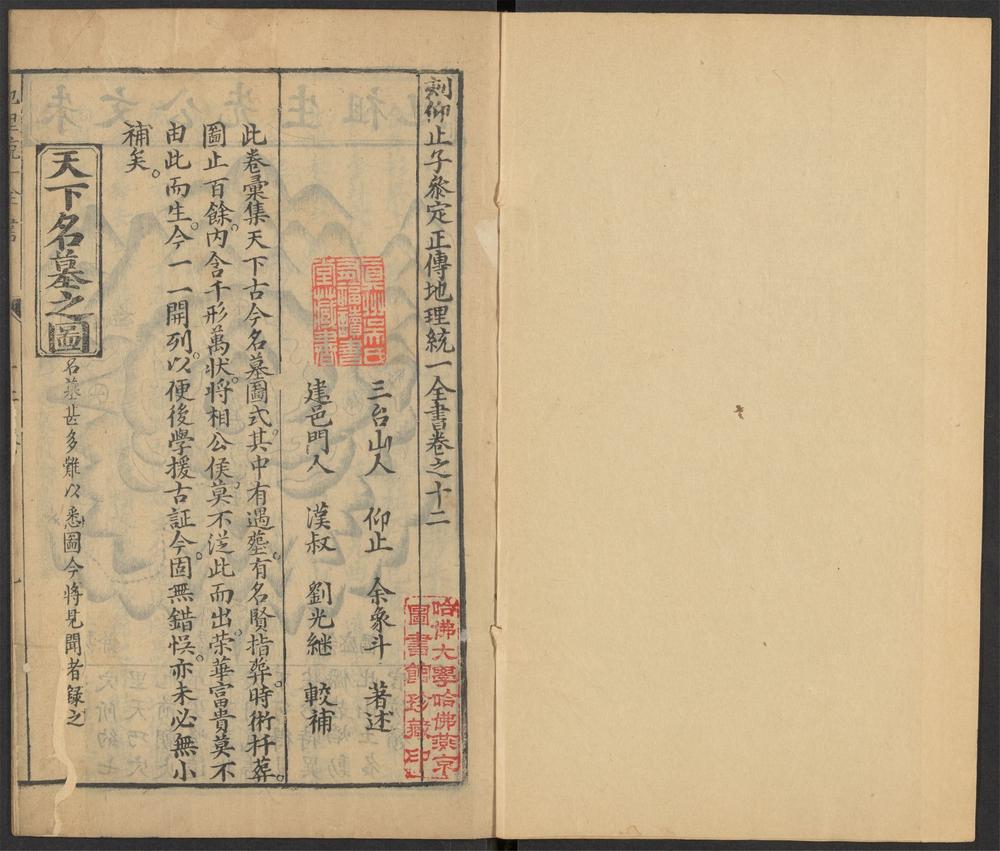 刻仰止子叅定正傳地理統一全書卷之十二
三台山人 仰止 余象斗 著述
建邑門人 漢叔 劉光継 較補
此卷彙集天下古今名墓圖式。其中有遇蓥。有名賢指葬。時術扦葬。
圖止百餘。内含千形萬狀。將相公侯。莫不従此而出。荣華富貴。莫不
由此而生。今一一開列。以便後學援古証今。固無錯悞。亦未必無小
補矣。
天下名墓之圖
名墓甚多難以悉圖今將見聞者録之
真州吳氏
有福讀書
堂藏書
哈佛大學哈佛燕京
圖書館珍藏印